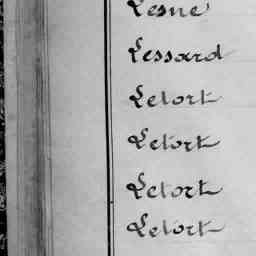 Lesne
Lessard
Letort
Letort
Letort
Letort